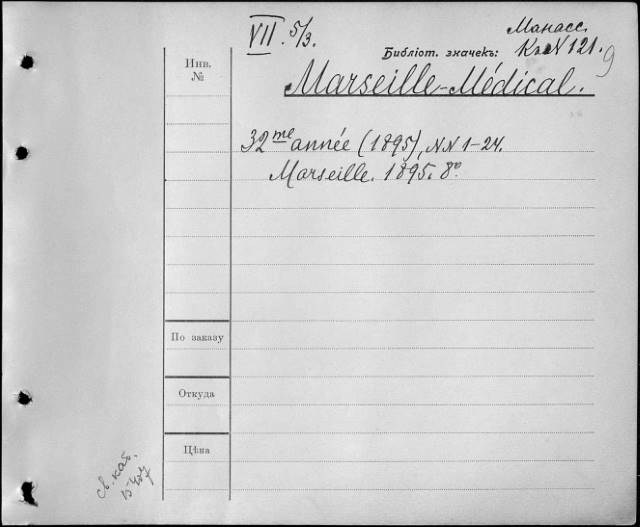 VII. 5/3.
Манасс.
Библіот. значекъ: К. N 121.
9
Инв. №
Marseille-Médical.
32me année (1895), NN 1-24.
Marseille. 1895. 8º.
По заказу
Откуда
Цѣна
св. кат.